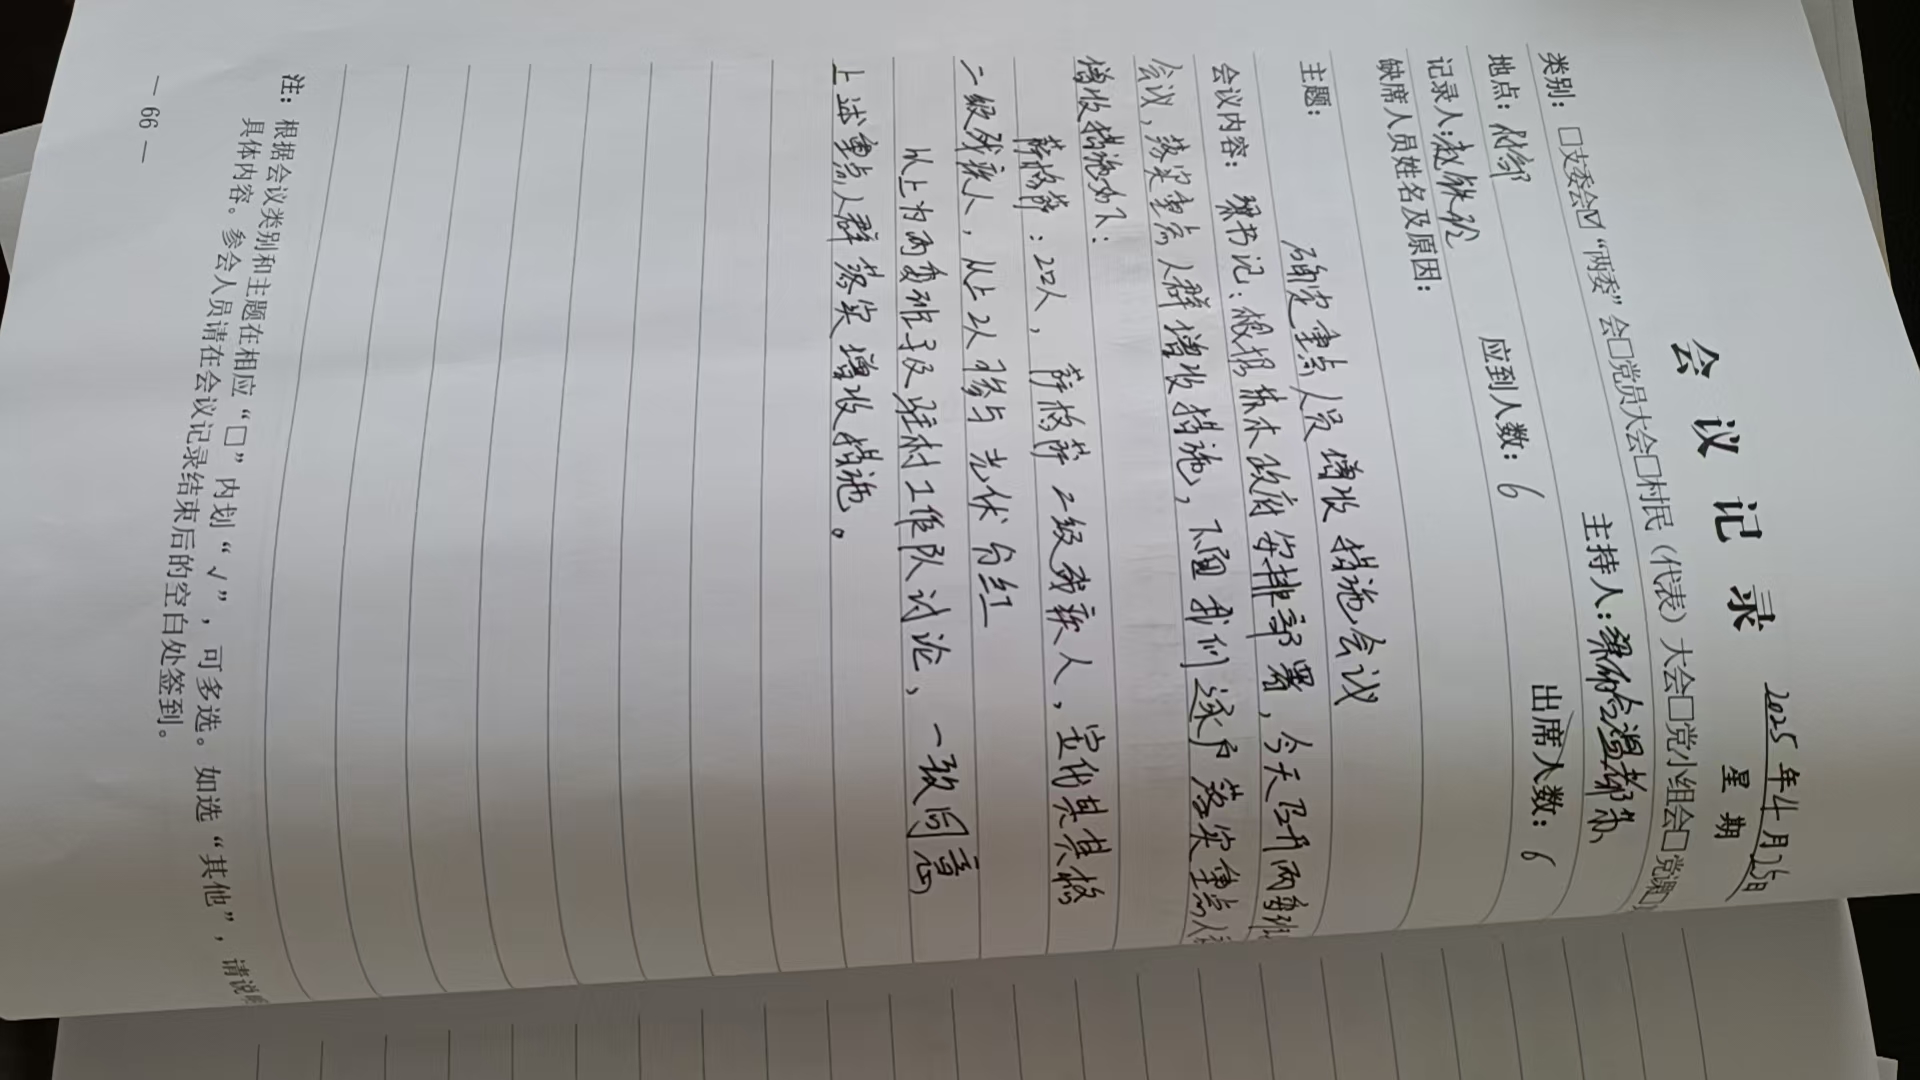 会议记录
2025年4月25日
星期
类别：□支委会☑“两委”会□党员大会□村民（代表）大会□党小组会□党课□
地点：村部 主持人：
记录人：赵铁 应到人数：6 出席人数：6
缺席人员姓名及原因：
主题：
确定重点人员增收措施会议
会议内容：梁书记：根据 政府安排部署，今天召开两委班
会议，落实重点人群增收措施，下面我们逐户落实重点人
增收措施如下：
：2口人， 二级残疾人，
二级残疾人，以上2人参与光伏分红
以上为两委班子及驻村工作队讨论，一致同意
上述重点人群落实增收措施。
注：根据会议类别和主题在相应“□”内划“√”，可多选。如选“其他”，请说
具体内容。参会人员请在会议记录结束后的空白处签到。
— 66 —